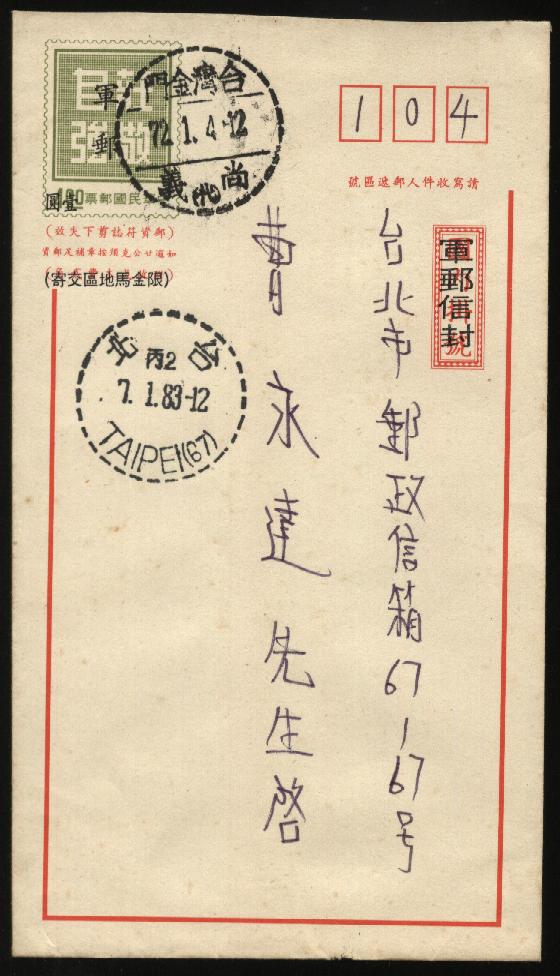 104
請寫收件人郵遞區號
軍郵信封
台北市郵政信箱67-67号
曹永達先生啓
莊敬自強
軍郵
中華民國郵票
壹圓
台灣金門
72.1.4-12
尚義
(代)
(郵資符誌剪下失效)
(限金馬地區交寄)
台北
丙2
7.1.83-12
TAIPEI(67)